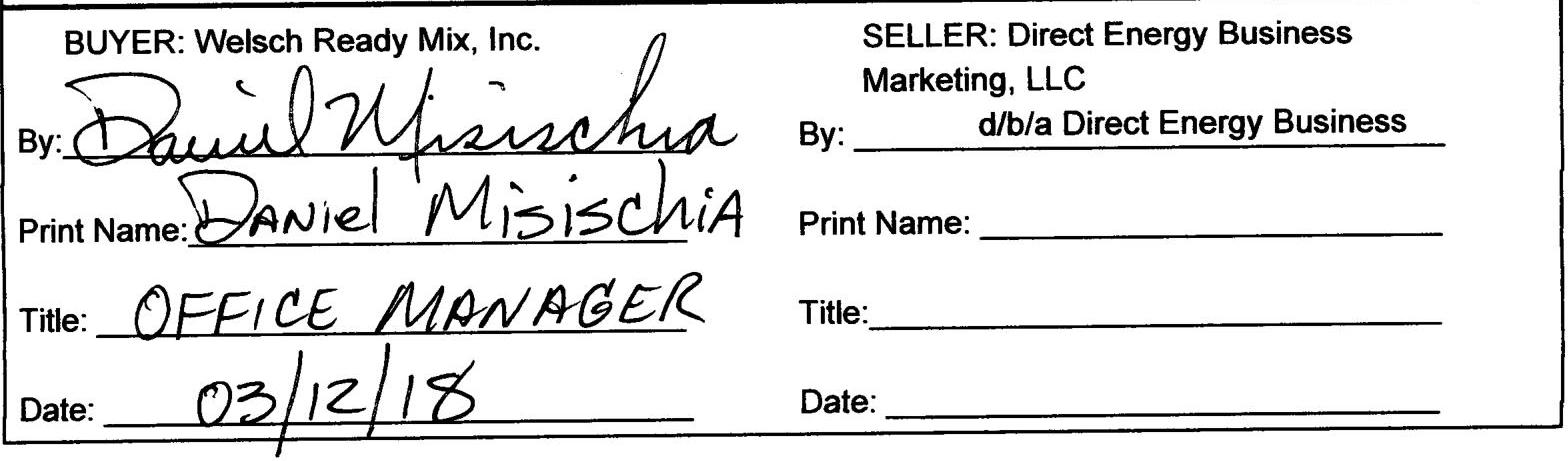 BUYER: Welsch Ready Mix, Inc.
By: Daniel Misischia
Print Name: DANiel MisischiA
Title: OFFICE MANAGER
Date: 03/12/18
SELLER: Direct Energy Business
Marketing, LLC
d/b/a Direct Energy Business
By:
Print Name:
Title:
Date: